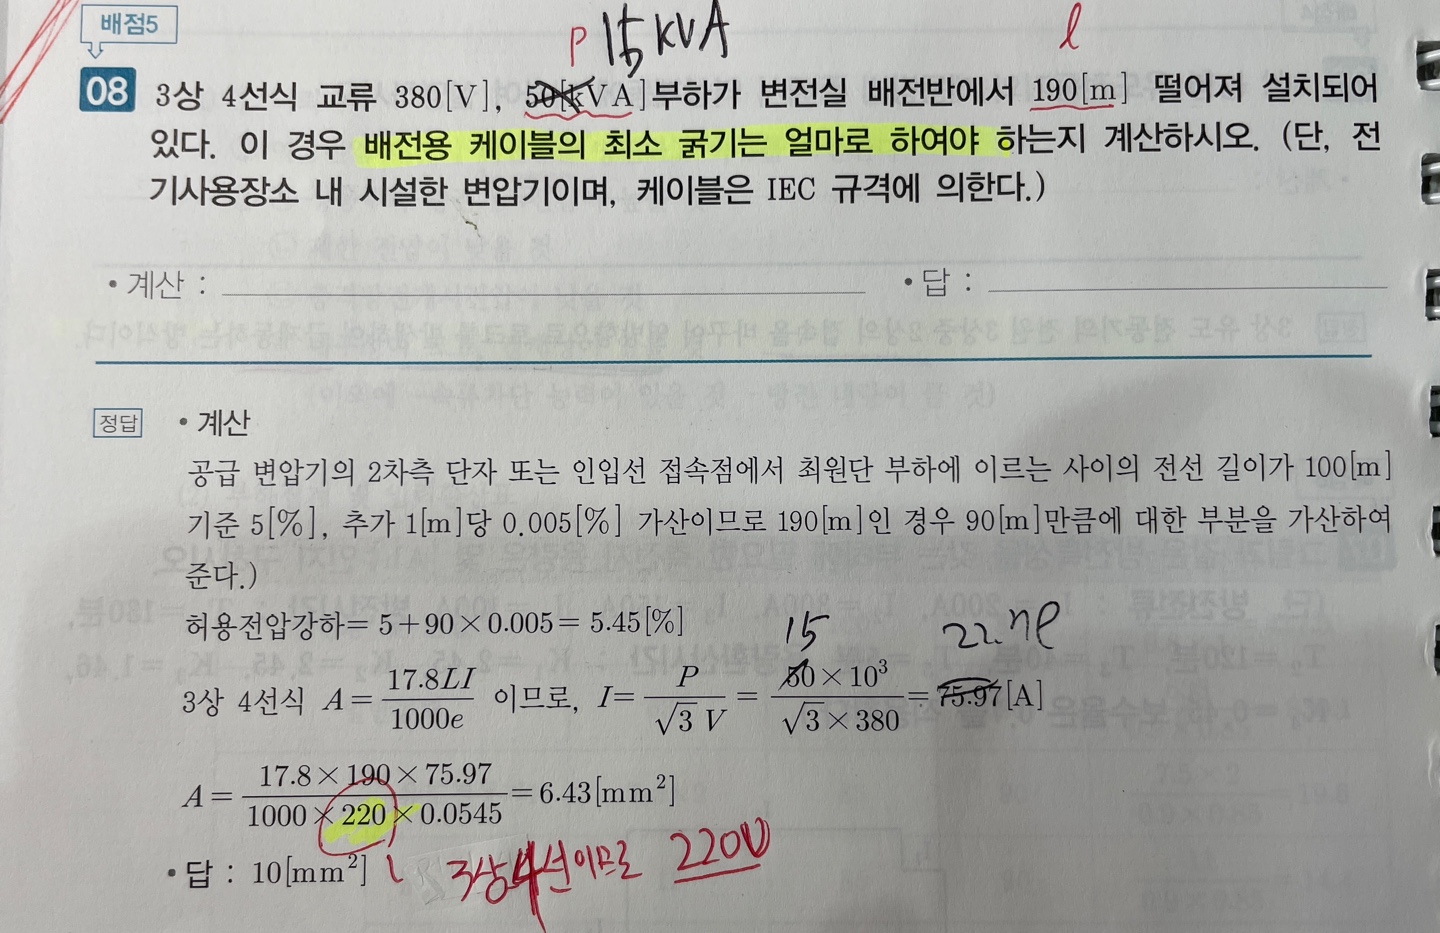 배점5
P 15kVA
l
08 3상 4선식 교류 380[V], 50[kVA]부하가 변전실 배전반에서 190[m] 떨어져 설치되어
있다. 이 경우 배전용 케이블의 최소 굵기는 얼마로 하여야 하는지 계산하시오. (단, 전
기사용장소 내 시설한 변압기이며, 케이블은 IEC 규격에 의한다.)
• 계산 :
• 답 :
정답 • 계산
공급 변압기의 2차측 단자 또는 인입선 접속점에서 최원단 부하에 이르는 사이의 전선 길이가 100[m]
기준 5[%], 추가 1[m]당 0.005[%] 가산이므로 190[m]인 경우 90[m]만큼에 대한 부분을 가산하여
준다.)
허용전압강하= 5+90×0.005= 5.45[%]
15
3상 4선식 A = 17.8LI / 1000e 이므로, I = P / √3 V = 50×10³ / √3×380 = 75.97[A]
A = 17.8×190×75.97 / 1000×220×0.0545 = 6.43[mm²]
• 답 : 10[mm²]
3상4선이므로 220V